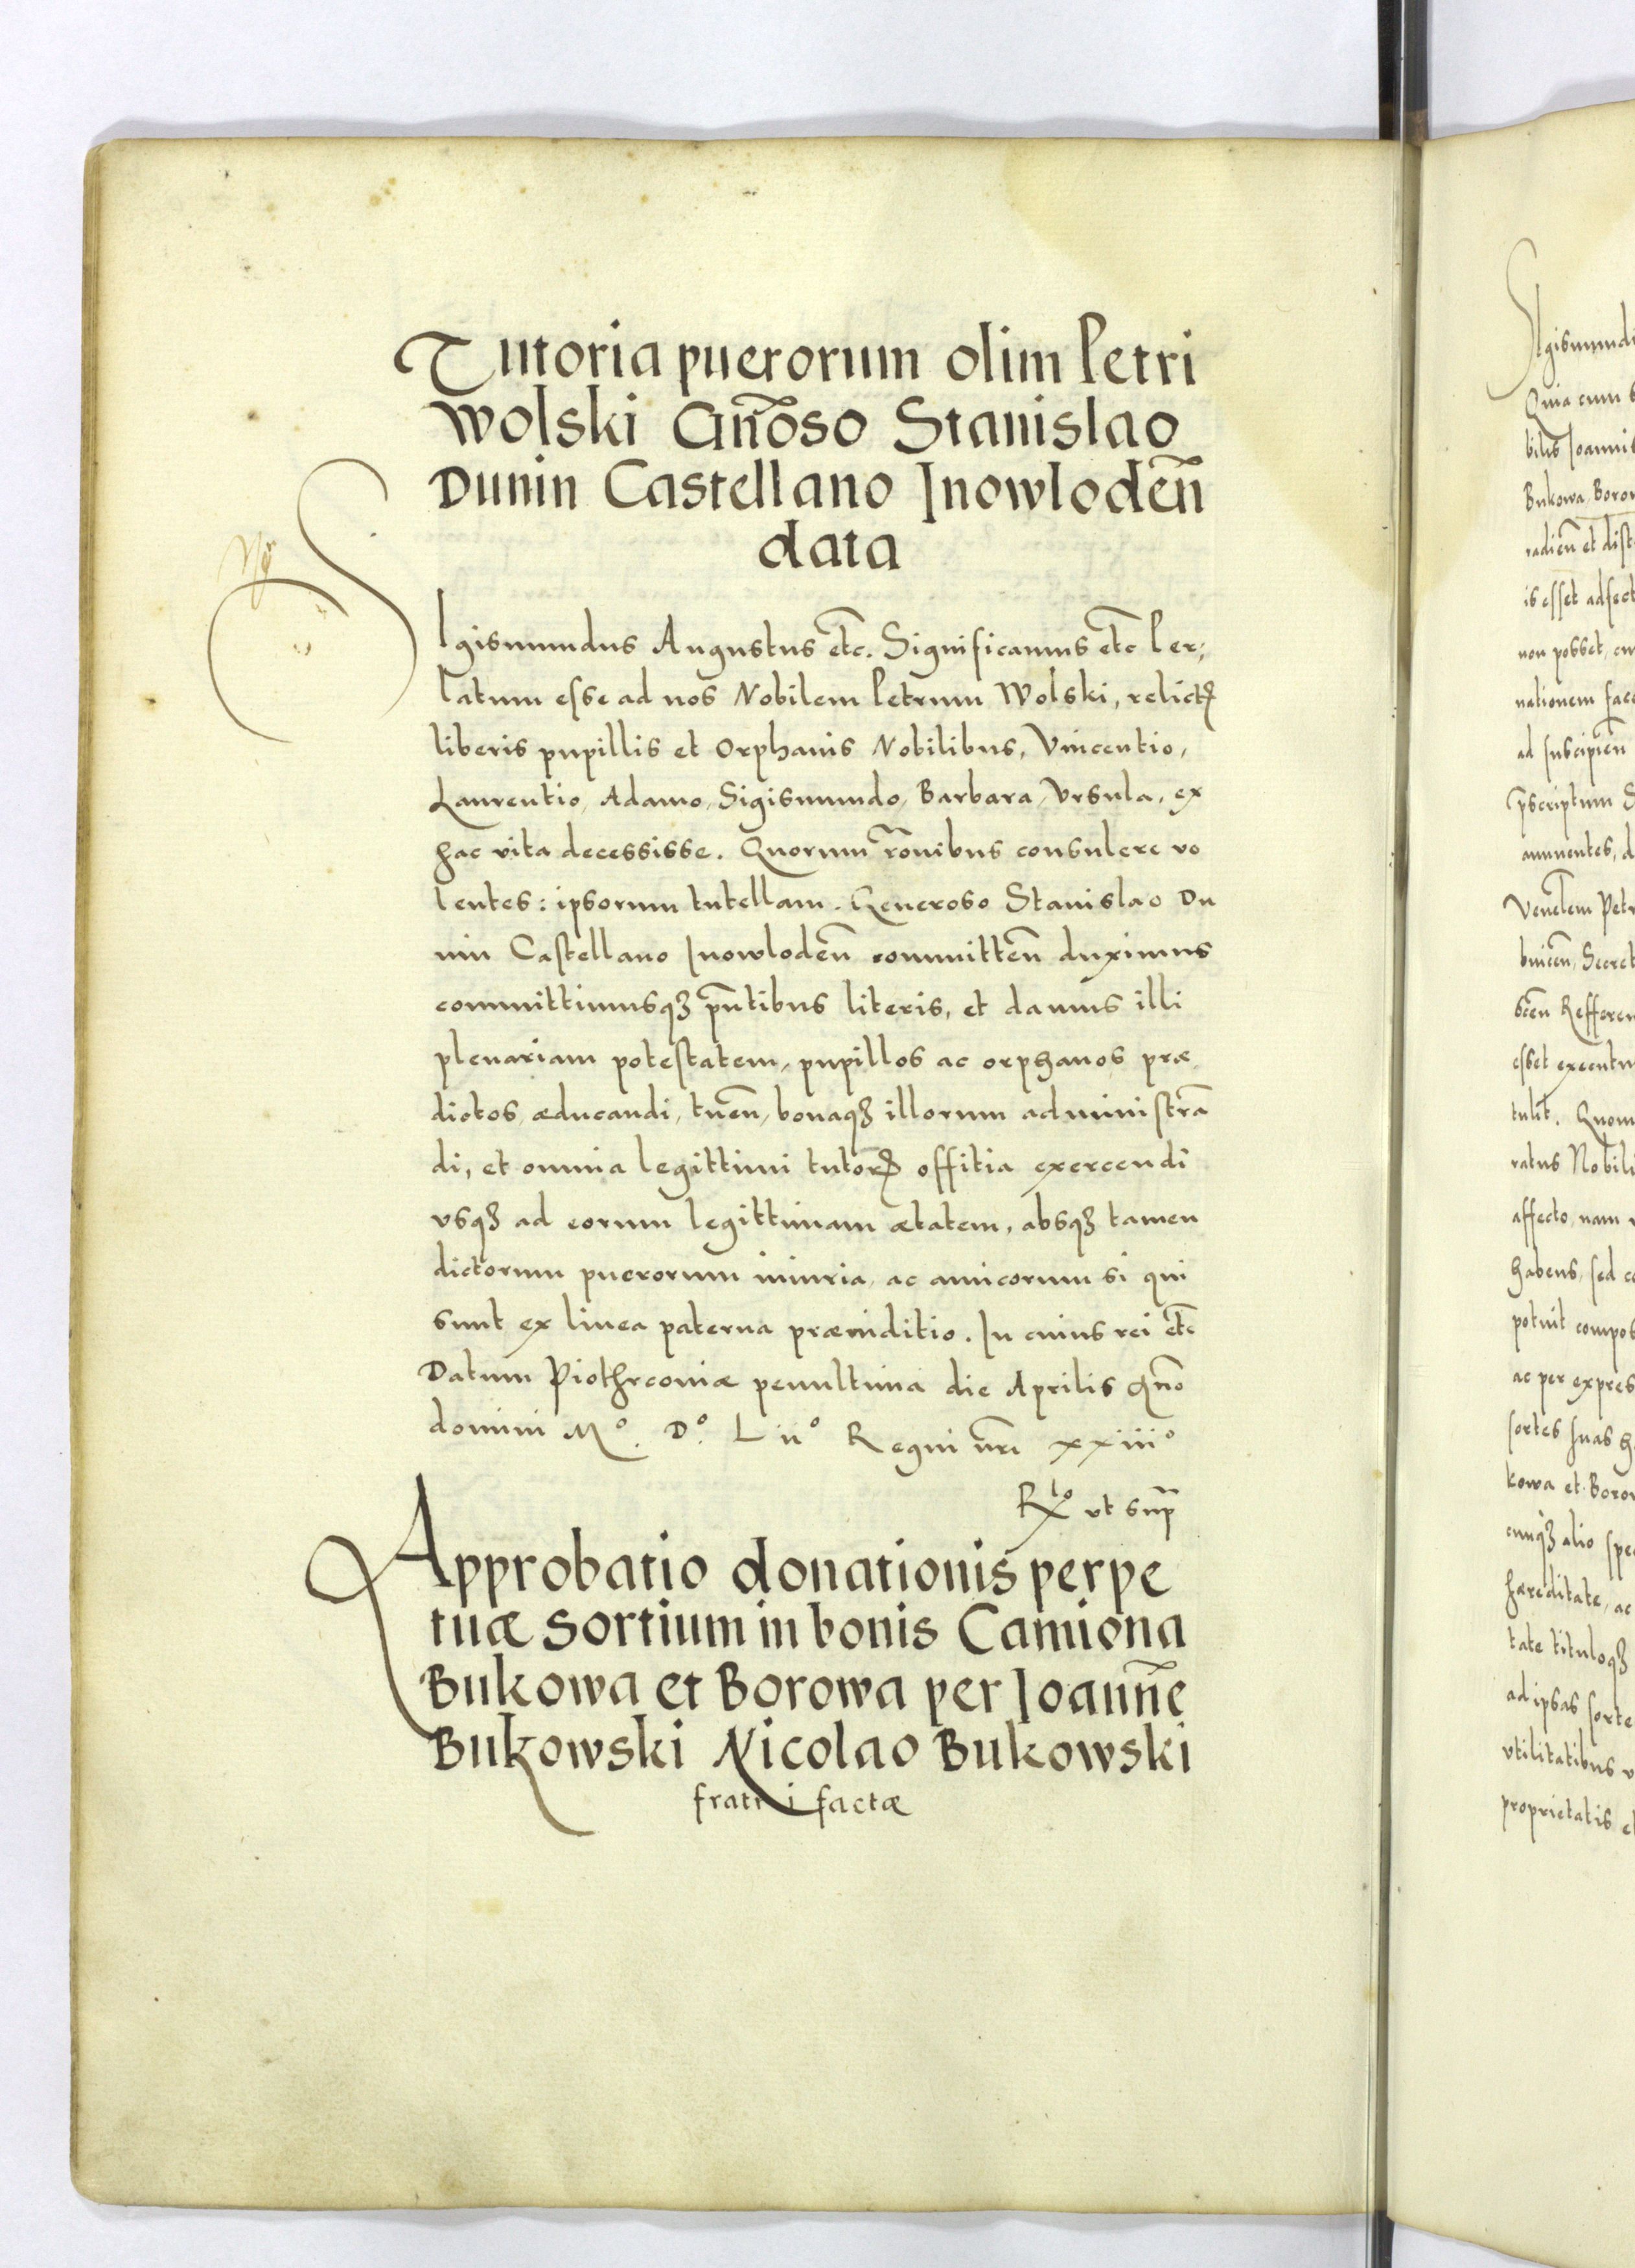 Tutoria puerorum olim Petri
Wolski Gn̄oso Stanislao
Dunin Castellano Inowloden̄
data
Sigismundus Augustus etc̄. Significamus etc̄ Per;
latum esse ad nos Nobilem Petrum Wolski, relictꝭ
liberis pupillis et Orphanis Nobilibus, Vincentio,
Laurentio, Adamo, Sigismundo, Barbara, Vrsula, ex
hac vita decessisse. Quorum rōnibus consulere vo
lentes: ipsorum tutellam. Generoso Stanislao Du
nin Castellano Inowloden̄ committen̄ duximus
committimusqꝫ pn̄tibus literis, et damus illi
plenariam potestatem, pupillos ac orphanos præ
dictos, æducandi, tuen̄, bonaqꝫ illorum administrā
di, et omnia legittimi tutorꝭ offitia exercendi
vsqꝫ ad eorum legittimam ætatem, absqꝫ tamen
dictorum puerorum iniuria, ac amicorum si qui
sunt ex linea paterna præiuditio. In cuius rei etc̄
Datum Piothrcoviæ penultima die Aprilis Ann̄o
domini Mº. Dº. L iiº Regni nr̄i xxiiiº
Rᵗᵒ vt sup̄
Approbatio donationis perpe
tuæ sortium in bonis Camiona
Bukowa et Borowa per Ioann̄e
Bukowski Nicolao Bukowski
fratri factæ
Sigismund
Quia cum
bilis Ioannis
Bukowa, Boro
radien̄ et dist
is esset adfect
non posset,
nationem fac
ad suscipien̄
p̄scriptum S
annuentes, d
Ven̄lem Petr
bincen̄, Secret
scen̄ Refferen
esset executu
tulit. Quom
ratus Nobili
affecto, nam
habens, sed c
potuit compos
ac per expres
sortes suas h
kowa et Boro
cunqꝫ alio spe
hæreditate, ac
tate tituloqꝫ
ad ipsas sorte
vtilitatibus v
proprietatis et